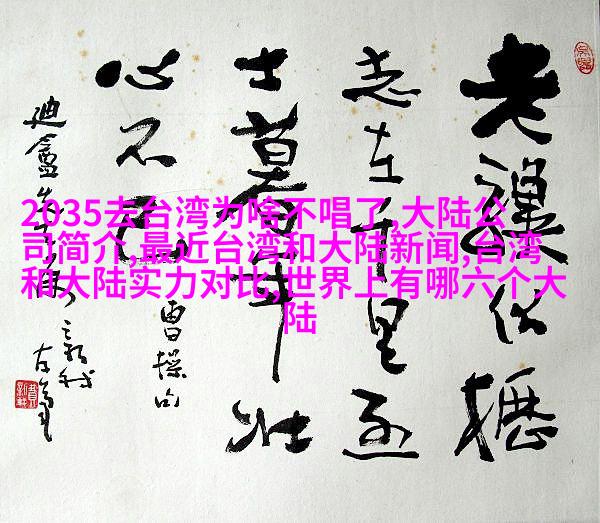 2035去台湾为啥不唱了,大陆公
司简介,最近台湾和大陆新闻,台湾
和大陆实力对比,世界上有哪六个大
陆
老驥伏櫪
志在千里烈
士暮年壮
心不已
曹操句
迪盦先生